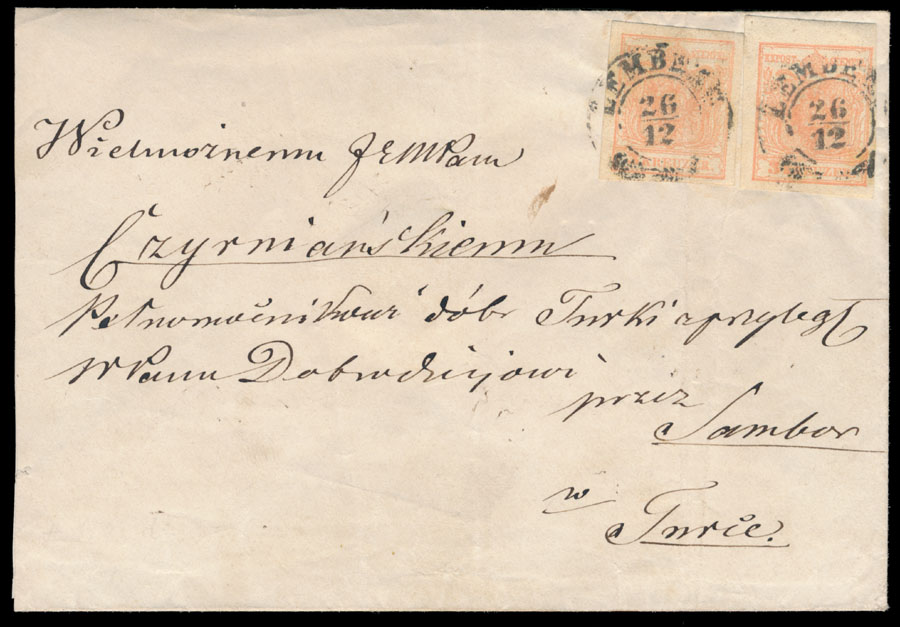 LEMBERG LEMBERG
26 26
12 12
Wielmożnemu JE WPanu
Czyrniańskiemu
Pełnomocnikowi dóbr Turki z przyległ
WPanu Dobrodziejowi
przez
Sambor
w
Turce.